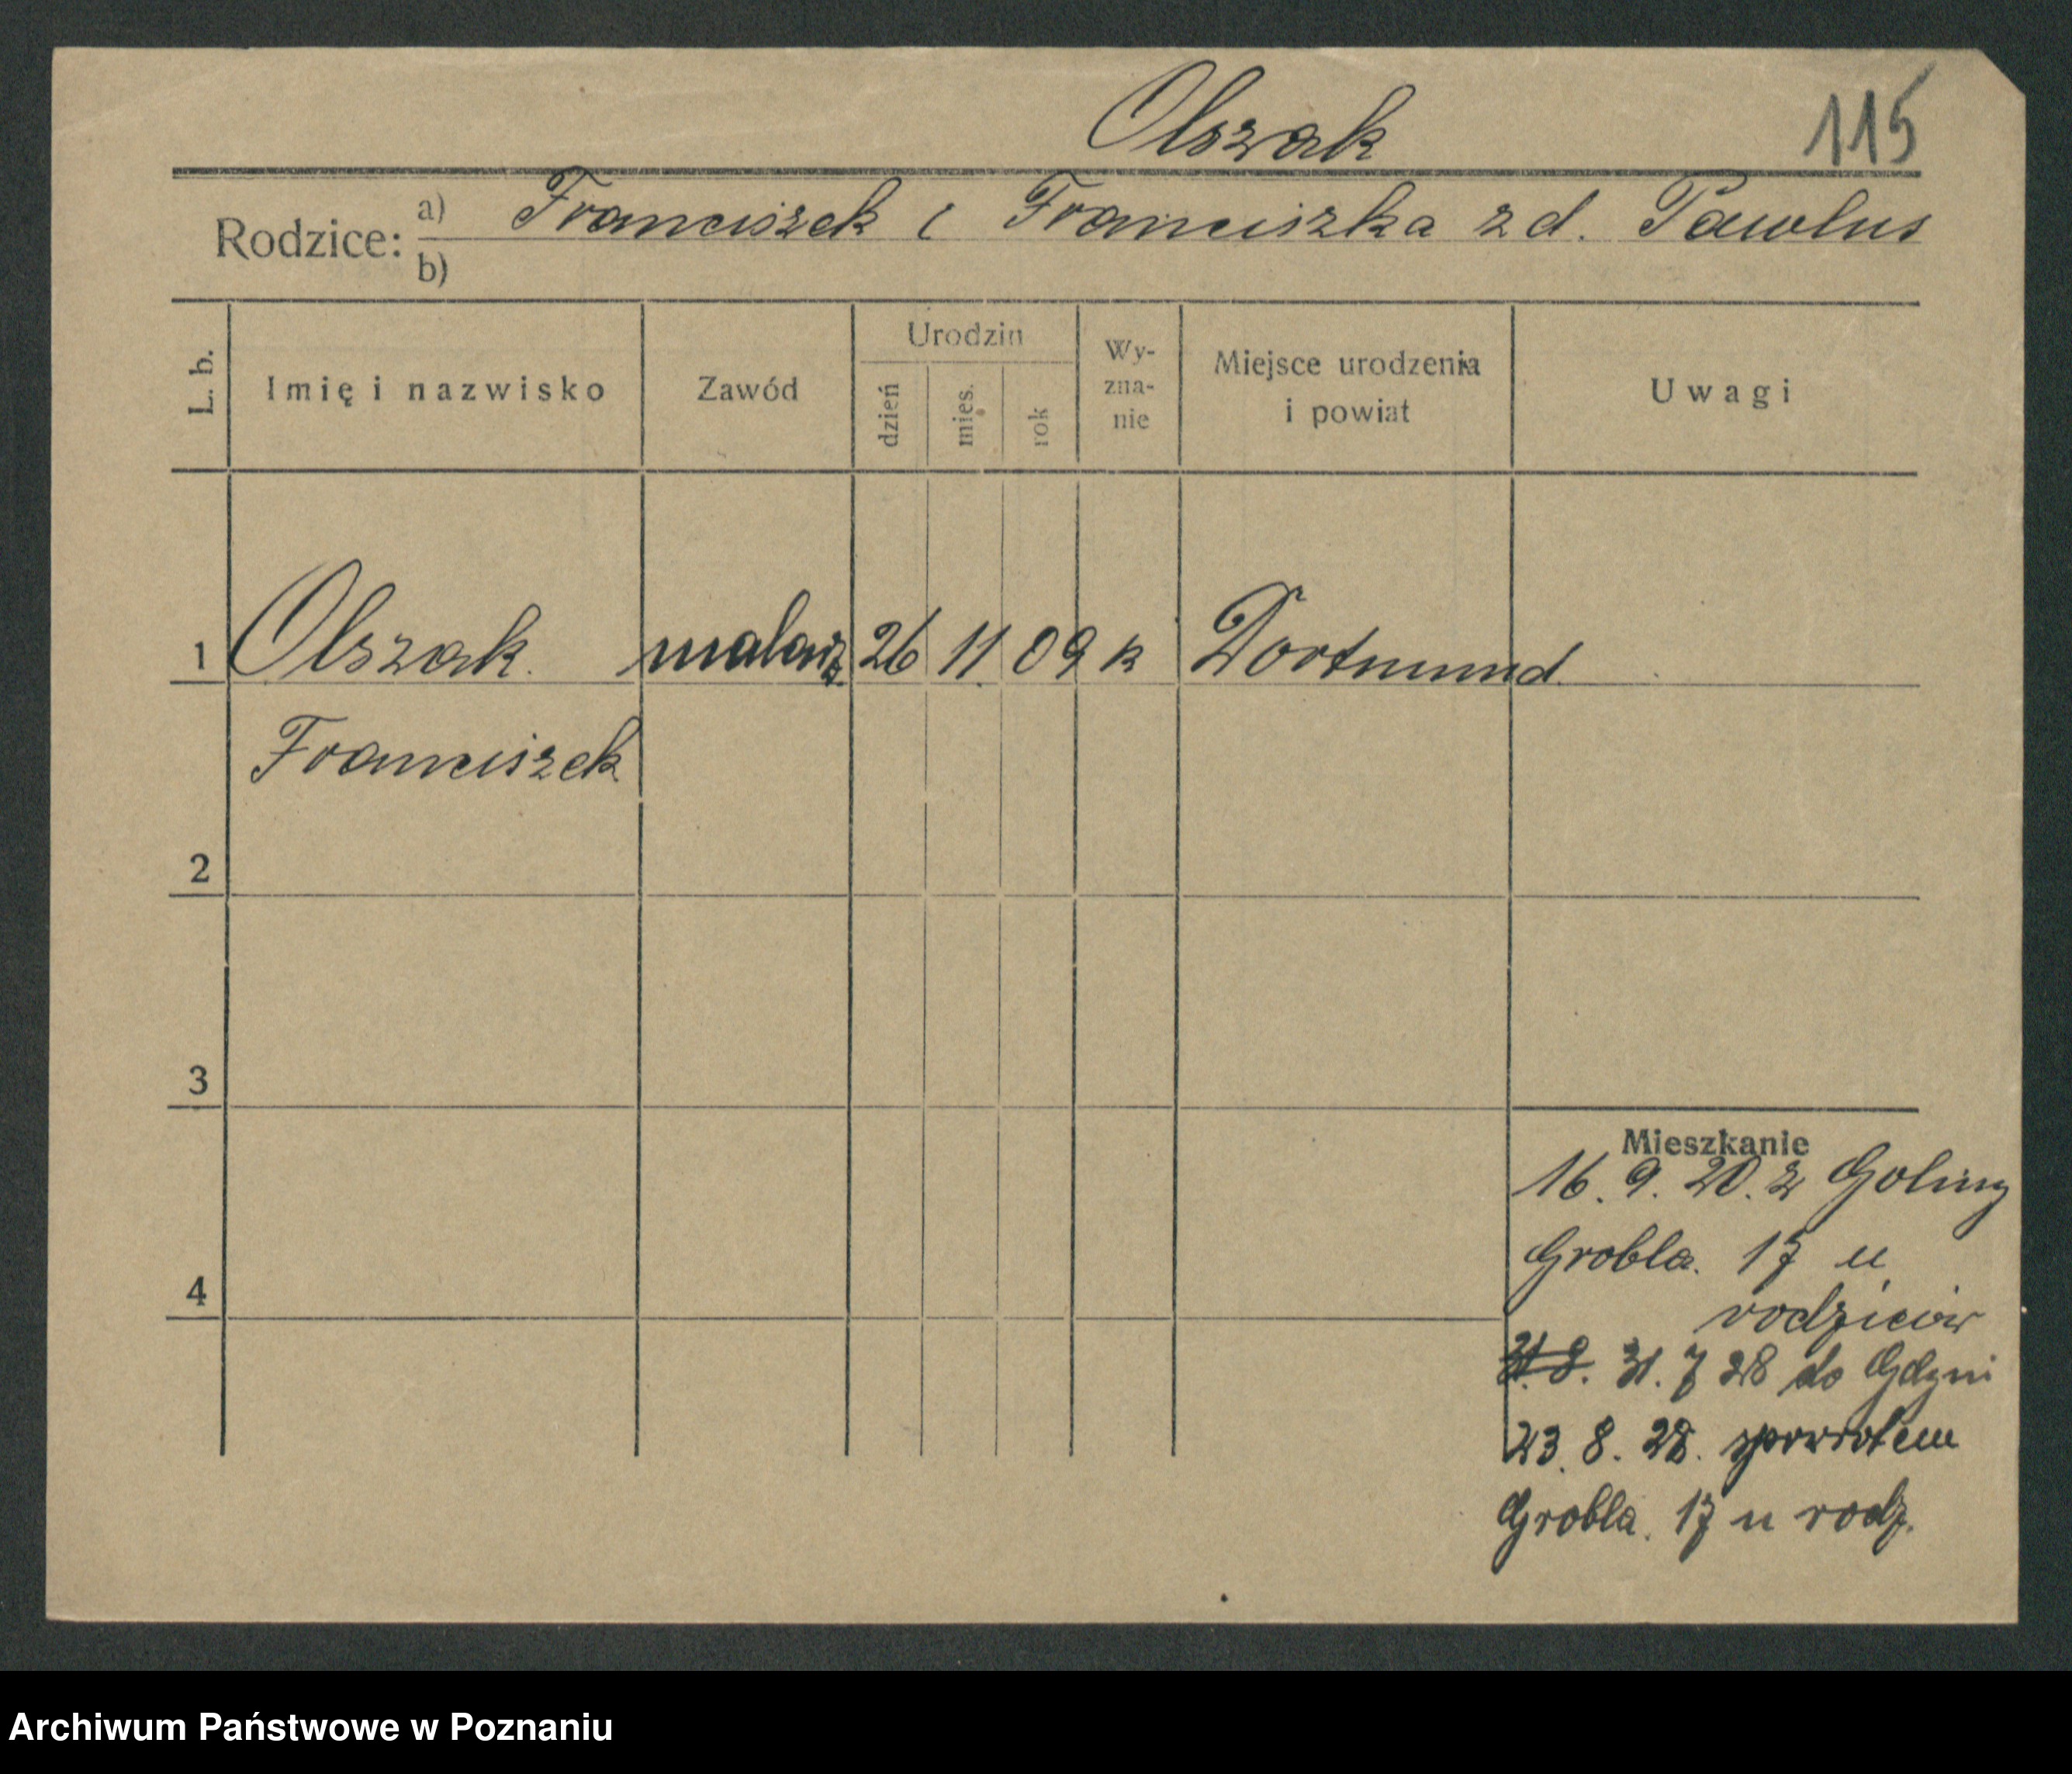 Olszak 115
Rodzice: a) Franciszek i Franciszka zd. Pawlus
b)
L. b. Imię i nazwisko Zawód Urodzin dzień mies. rok Wy-zna-nie Miejsce urodzenia i powiat Uwagi
1 Olszak malarz 26 11. 09 k Dortmund
Franciszek
2
3
Mieszkanie
16. 9. 20. z Goliny
Grobla. 17 u
4
rodziców
31. 7 28 do Gdyni
23. 8. 28. spowrotem
Grobla. 17 u rodz.
Archiwum Państwowe w Poznaniu